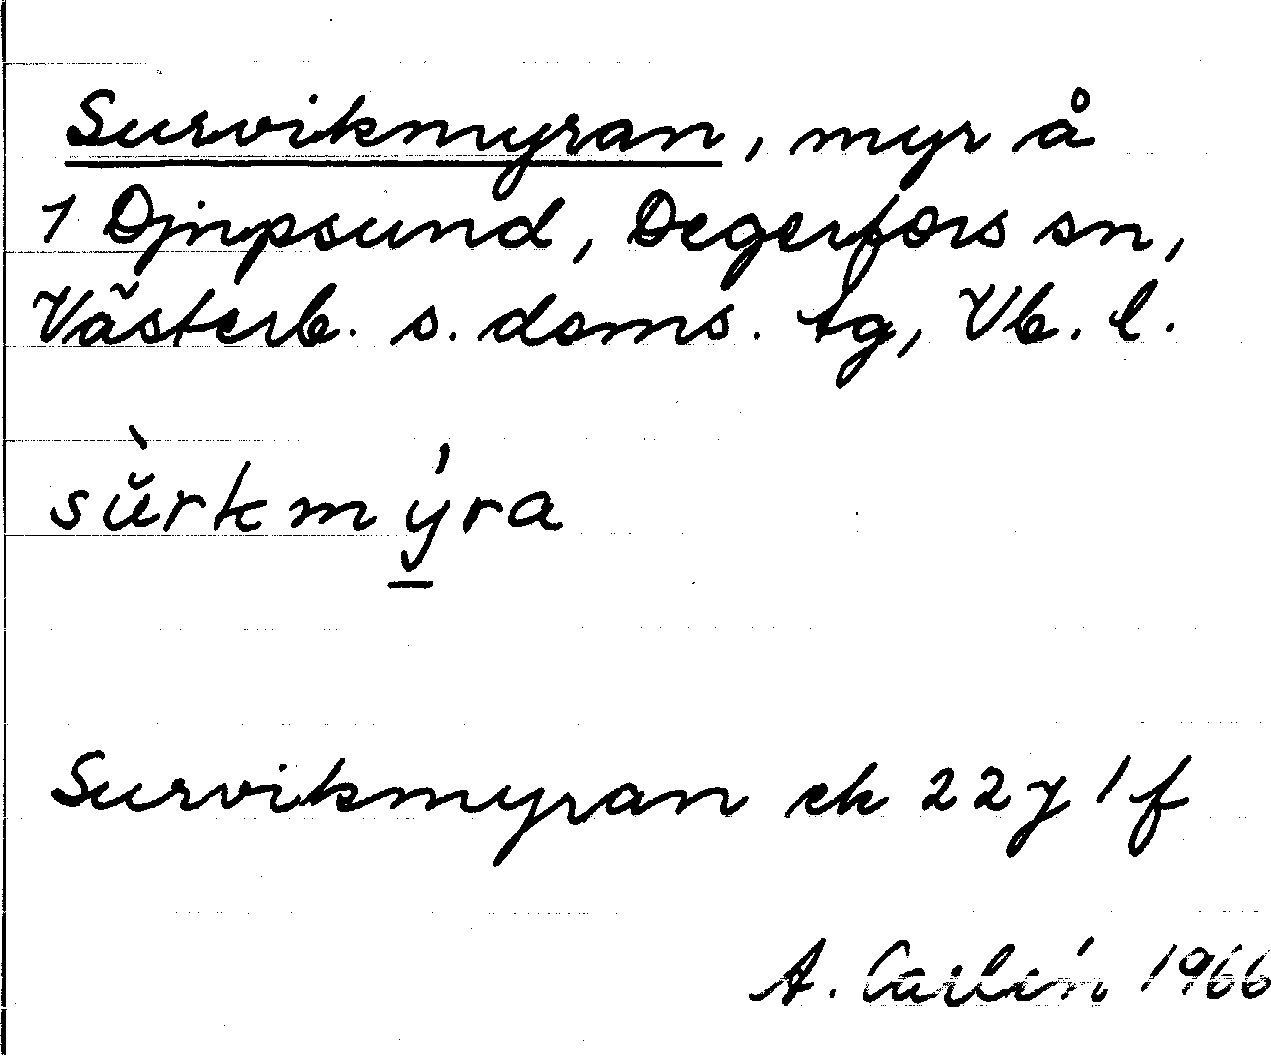 Survikmyran, myr å
1 Djupsund, Degerfors sn,
Västerb. s. doms. tg, Vb. l.
sŭ̀rkmý̱ra
Survikmyran ek 22 J 1 f
A. Carlén 1966